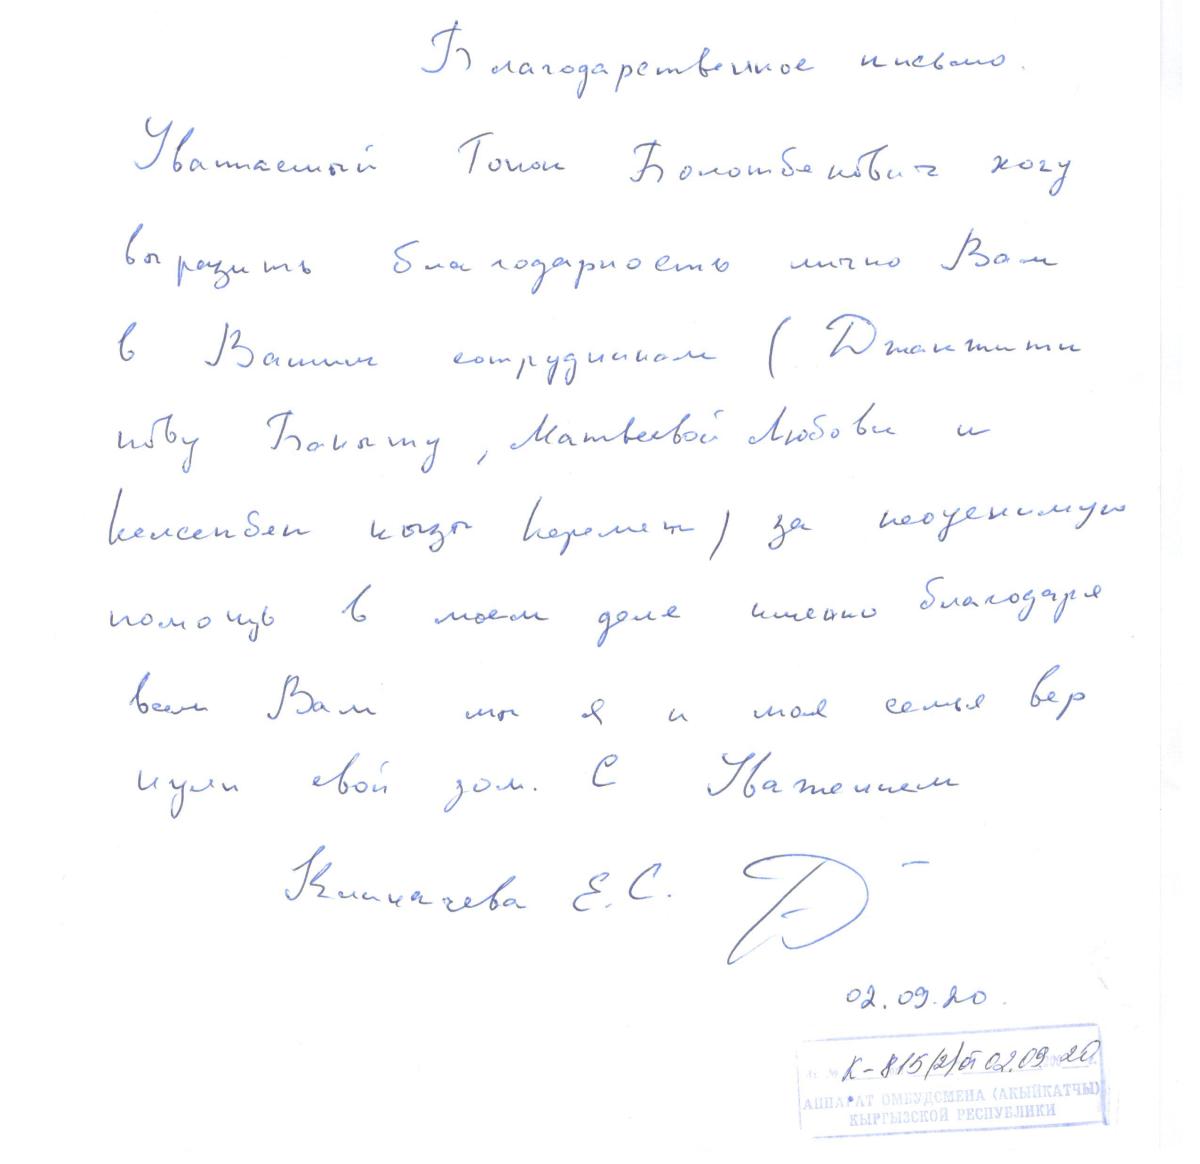 Благодарственное письмо.
Уважаемый Токон Болотбекович хочу
выразить благодарность лично Вам
в Вашим сотрудникам (Джантами
нову Бакыту, Матвеевой Любови и
кызы Керемет) за неоценимую
помощь в моем деле именно благодаря
всем Вам мы я и моя семья вер
нули свой дом. С Уважением
Е.С.
02.09.20.
К-815/2/от 02.09.20
АППАРАТ ОМБУДСМЕНА (АКЫЙКАТЧЫ)
КЫРГЫЗСКОЙ РЕСПУБЛИКИ